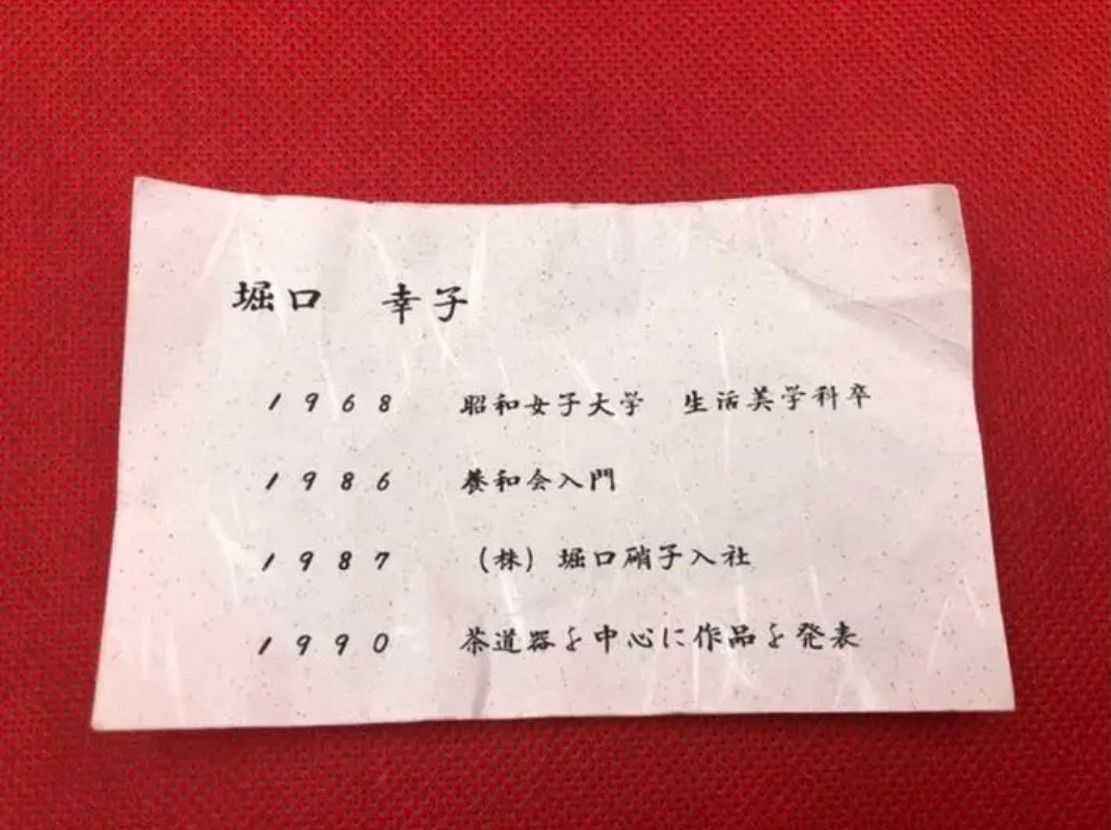 堀口　幸子
１９６８　昭和女子大学　生活美学科卒
１９８６　養和会入門
１９８７　（株）堀口硝子入社
１９９０　茶道器を中心に作品を発表